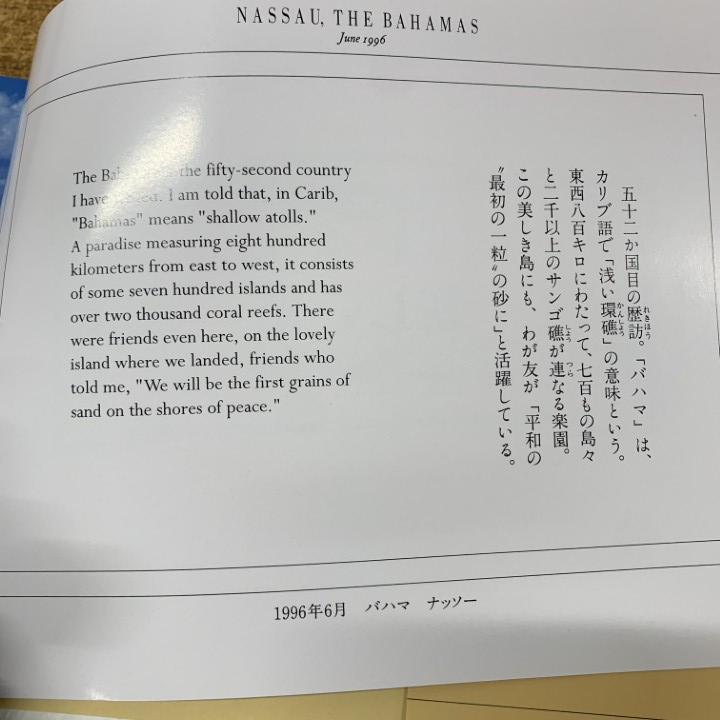 NASSAU, THE BAHAMAS
June 1996
The the fifty-second country
I have I am told that, in Carib,
"Bahamas" means "shallow atolls."
A paradise measuring eight hundred
kilometers from east to west, it consists
of some seven hundred islands and has
over two thousand coral reefs. There
were friends even here, on the lovely
island where we landed, friends who
told me, "We will be the first grains of
sand on the shores of peace."
五十二か国目の歴訪。「バハマ」は、
カリブ語で「浅い環礁」の意味という。
東西八百キロにわたって、七百もの島々
と二千以上のサンゴ礁が連なる楽園。
この美しき島にも、わが友が「平和の
〝最初の一粒〟の砂に」と活躍している。
1996年6月 バハマ ナッソー